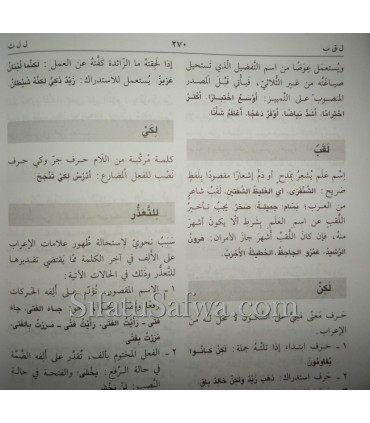 ل ق ب
٢٧٠
ل ل ت
ويُستعمل عِوَضًا من اسم التّفضيل الّذي تستحيل
صياغته من غير الثّلاثيّ، فيأتي قَبْلَ المصدر
المنصوب على التّمييز: أَوْسَعُ اخْتِصارًا، أَقْصَرُ
احْتِرامًا، أَشَدُّ بَياضًا، أَوْفَرُ دَهَبًا، أَعْظَمُ شَأْنًا
لَقَب
اِسْم عَلَم يُشعِرُ بمَدح أو ذَمّ إشعارًا مقصودًا بلَفظٍ
صَريح: الشَّنْفَرَى، أي الغَليظُ الشَّفَتَيْن، لَقَبُ شاعر
من العرب؛ بَسّام؛ جَميلة؛ صَخْر. يجب تأخير
اللّقب عن اسم العَلَم بشرط ألّا يكون أَشهَر
منه، فإن كانَ اللّقب أشهَرَ جاز الأمران: هرونُ
الرَّشيد، عَمْرو الجاحظ، الحُطَيْئَة الأَجْرَب
لَكِنْ
حَرف مَعنًى مبني على السّكون، لا محلّ له من
الإعراب
١ - حَرف ابتداء إذا تلَتْهُ جملة: لَكِنْ كَانُوا
يُقاوِمُونَ
٢ - حَرف استدراك: ذَهَبَ زَيْدٌ وَلَكِنْ خَالِدٌ بَاقٍ
إذا لَحِقَتهُ ما الزّائدة كَفَّتْهُ عن العمل: لَكِنَّما لُبْنَانُ
عَزِيزٌ. يُستعمل للاستدراك: زَيْدٌ ذَكِيٌّ لَكِنَّهُ شَيْطَانٌ
لِكَيْ
كلمة مُركّبة من اللّام حرف جرّ وكي حرف
نَصْب للفعل المضارع: أَدْرُسُ لِكَيْ تَنْجَحَ
لِلتَّعَذُّر
سَبَبٌ نحويّ لاستحالة ظُهور علامات الإعراب
على الألف في آخر الكلمة ممّا يقتضي تقديرها
للتّعذّر وذلك في الحالات الآتية:
١ - الاسم المقصور، تُقدَّر على ألفه الحَركات
جاءَ الفَتى، جاءَ
فَتًى - رَأَيْتُ الفَتى، رَأَيْتُ فَتًى - مَرَرْتُ بِالفَتى،
مَرَرْتُ بِفَتًى
٢ - الفعل المختوم بألف، تُقدَّر على ألفه الضّمّة
في حالة الرّفع: يَخْشَى، والفتحة في حالة
النّصب: لَنْ يَخْشَى
SifatuSafwa.com